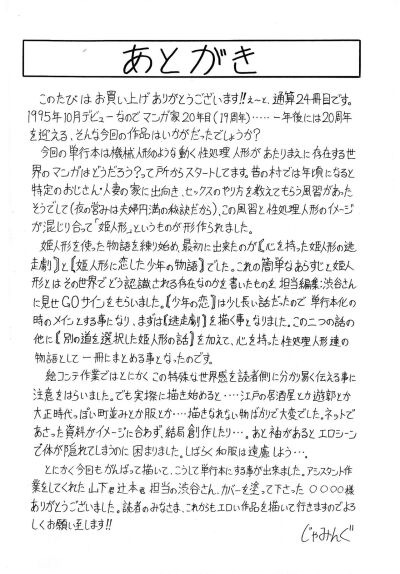 あとがき
このたびはお買い上げありがとうございます!!え〜と、通算24冊目です。
1995年10月デビューなのでマンガ家20年目(19周年)……一年後には20周年
を迎える、そんな今回の作品はいかがだったでしょうか?
今回の単行本は機械人形のような動く性処理人形があたりまえに存在する世
界のマンガはどうだろう?って所からスタートしてます。昔の村では年頃になると
特定のおじさん・人妻の家に出向き、セックスのやり方を教えてもらう風習があった
そうでして(夜の営みは夫婦円満の秘訣だから)、この風習と性処理人形のイメージ
が混じり合って「姫人形」というものが形作られました。
姫人形を使った物語を練り始め、最初に出来たのが《心を持った姫人形の逃
走劇》と《姫人形に恋した少年の物語》でした。これの簡単なあらすじと姫人
形とはその世界でどう認識される存在なのかを書いたものを担当編集:渋谷さん
に見せGOサインをもらいました。《少年の恋》は少し長い話だったので単行本化の
時のメインとする事になり、まずは《逃走劇》を描く事となりました。この二つの話の
他に《別の道を選択した姫人形の話》を加えて、心を持った性処理人形達の
物語として一冊にまとめる事となったのです。
絵コンテ作業ではとにかくこの特殊な世界感を読者側に分かり易く伝える事に
注意をはらいました。でも実際に描き始めると……江戸の居酒屋とか遊郭とか
大正時代っぽい町並みとか服とか……描きなれない物ばかりで大変でした。ネットで
あさった資料がイメージに合わず、結局創作したり…。あと袖があるとエロシーン
で体が隠れてしまうのに困りました。しばらく和服は遠慮しよう…。
とにかく今回もがんばって描いて、こうして単行本にする事が出来ました。アシスタント作
業をしてくれた山下君辻本君担当の渋谷さん、カバーを塗って下さった○○○○様
ありがとうございました。読者のみなさま、これからもエロい作品を描いて行きますのでよろ
しくお願い致します!!
じゃみんぐ